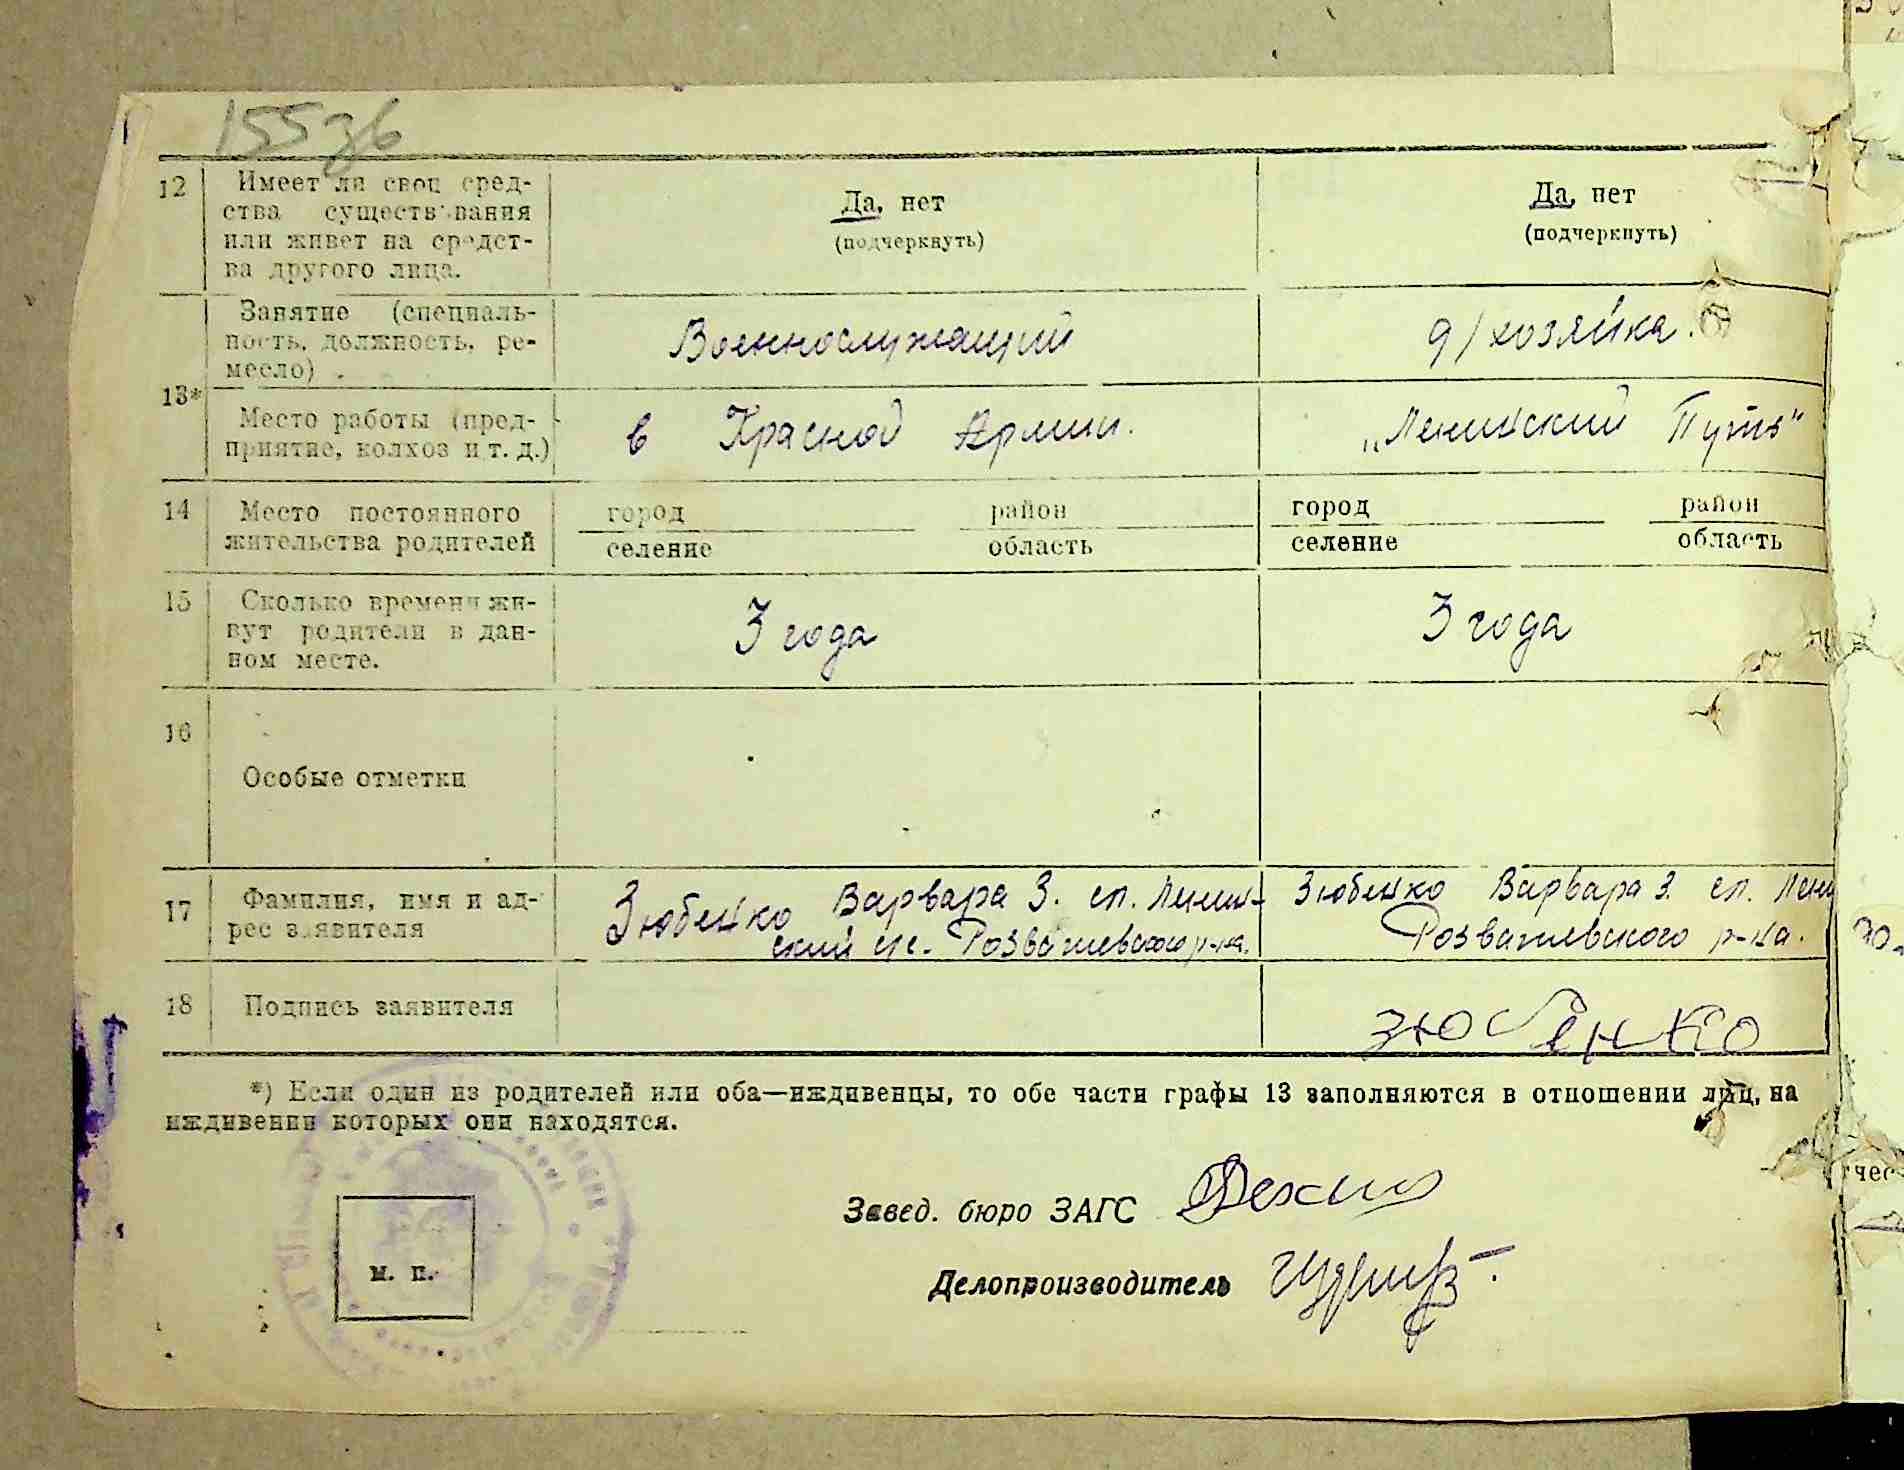 155зв
12 Имеет ли свои сред-
ства существования
или живет на средст-
ва другого лица.
Да, нет
(подчеркнуть)
Да, нет
(подчеркнуть)
13*
Занятие (специаль-
ность, должность, ре-
месло)
Военнослужащий
д/хозяйка.
Место работы (пред-
приятие, колхоз и т. д.)
в Красной Армии.
„Ленинский Путь"
14 Место постоянного
жительства родителей
город район
селение область
город район
селение область
15 Сколько времени жи-
вут родители в дан-
ном месте.
3 года
3 года
16
Особые отметки
17 Фамилия, имя и ад-
рес заявителя
Зюбенко Варвара З. сп. Ленин-
ский Розважевского р-на.
Зюбенко Варвара З. сп. Лени
Розважевского р-на.
18 Подпись заявителя
Зюбенко
*) Если один из родителей или оба—иждивенцы, то обе части графы 13 заполняются в отношении лиц, на
иждивении которых они находятся.
Завед. бюро ЗАГС
Делопроизводитель
м. п.